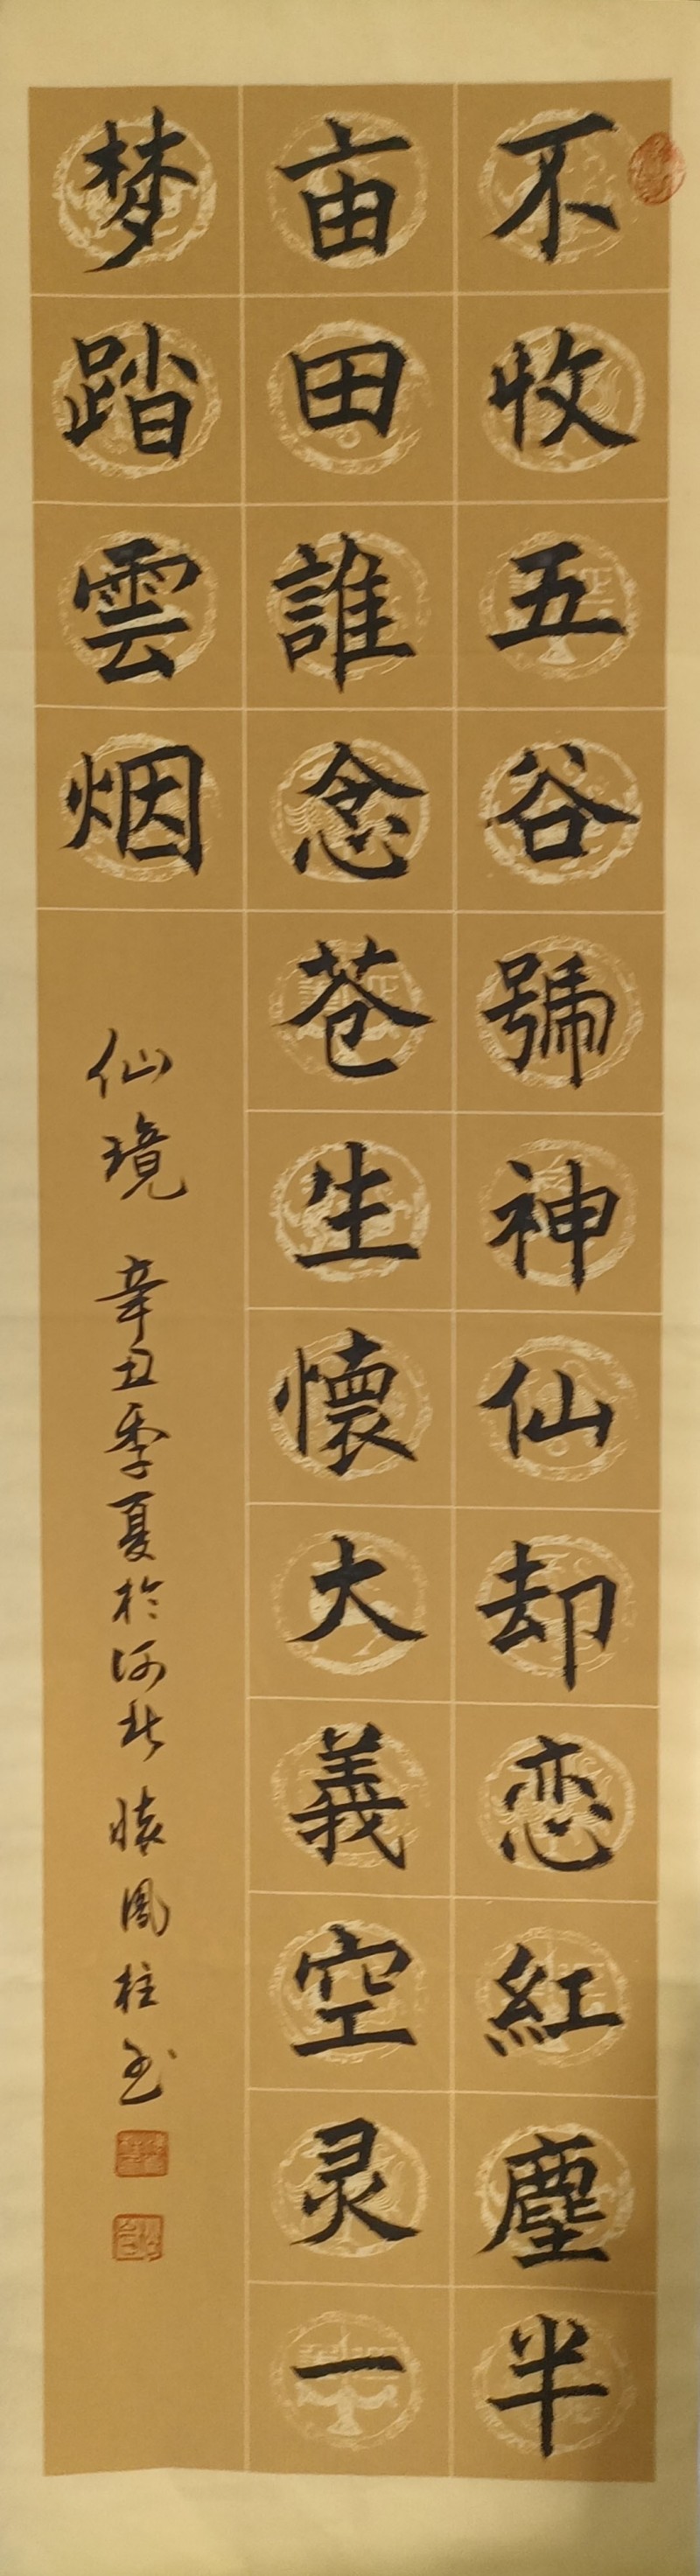 不收五谷號神仙却恋紅塵半
亩田誰念苍生懷大義空灵一
梦踏雲烟
仙境 辛丑季夏於河北 懷鳳柱书